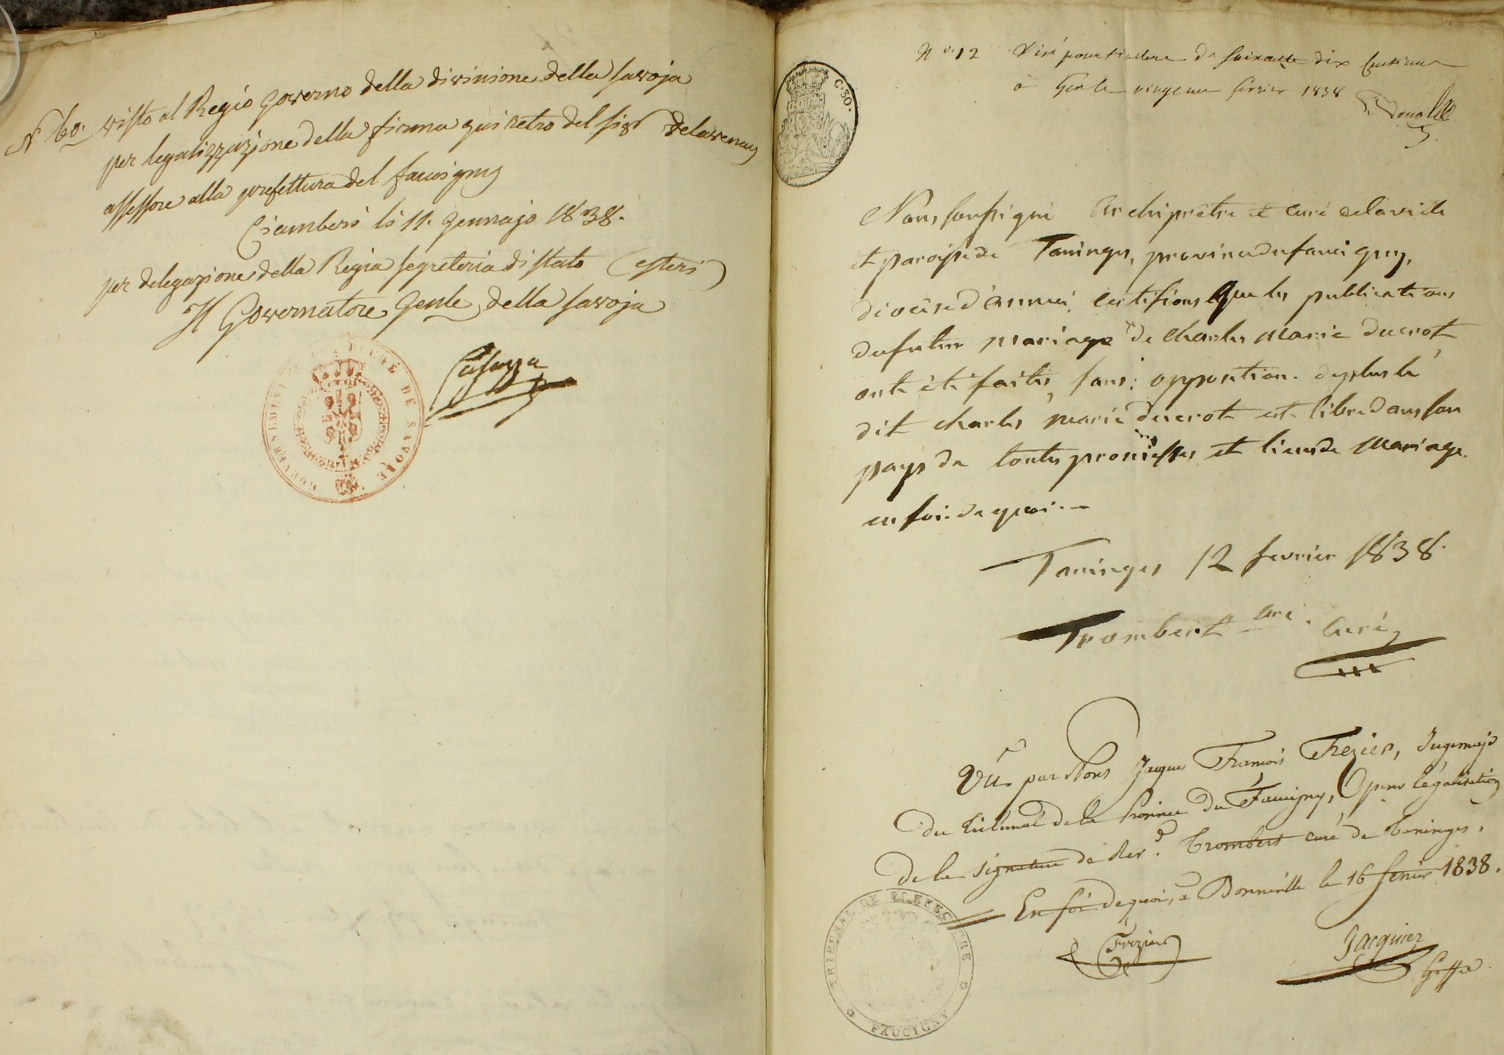 N.º 60. visto al Regio Governo della divisione della Savoja
per legalizzazione della firma qui retro del sigr Delavenay
assessore alla prefettura del faucigny
Ciamberì li 11. Gennajo 1838.
per delegazione della Regia segreteria di stato (esteri)
Il Governatore Gen.le della Savoja
DE SAVOIE
C. 50.
N.º 12 Visé pour timbre de soixante dix centimes
à février 1838
Nous soussigné Archiprêtre et curé de la ville
et paroisse de Taninges, province du faucigny,
diocèse d'annecy, certifions que les publications
du futur mariage de charles marie ducrot
ont été faites sans opposition. de plus le
dit charles marie ducrot est libre dans son
pays de toutes promesses et liens de mariage.
en foi de quoi. -
Taninges 12 fevrier 1838.
Trombert curé
Vû par Nous Jacques François Trezier, Jugemaje
du tribunal de la Province du Faucigny, pour légalisation
de la signature de Rev.d Trombert curé de Taninges.
En foi de quoi, à Bonneville le 16 fevrier 1838.
Trezier
Jacquier
Greff.
TRIBUNAL DE FAUCIGNY